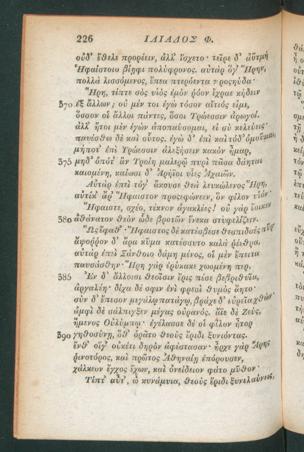 226 ΙΛΙΑΔΟΣ Φ.
οὐδ' ἔθελε προρέειν, ἀλλ' ἴσχετο· τεῖρε δ' ἀϋτμὴ
Ἡφαίστοιο βίηφι πολύφρονος. αὐτὰρ ὅγ' Ἥρην,
πολλὰ λισσόμενος, ἔπεα πτερόεντα προςηύδα·
Ἥρη, τίπτε σὸς υἱὸς ἐμὸν ῥόον ἔχραε κήδειν
370 ἐξ ἄλλων; οὐ μέν τοι ἐγὼ τόσον αἴτιός εἰμι,
ὅσσον οἱ ἄλλοι πάντες, ὅσοι Τρώεσσιν ἀρωγοί.
ἀλλ' ἤτοι μὲν ἐγὼν ἀποπαύσομαι, εἰ σὺ κελεύεις·
παυέσθω δὲ καὶ οὗτος. ἐγὼ δ' ἐπὶ καὶ τόδ' ὀμοῦμαι,
μήποτ' ἐπὶ Τρώεσσιν ἀλεξήσειν κακὸν ἦμαρ,
375 μηδ' ὁπότ' ἂν Τροίη μαλερῷ πυρὶ πᾶσα δάηται
καιομένη, καίωσι δ' Ἀρήϊοι υἷες Ἀχαιῶν.
Αὐτὰρ ἐπεὶ τόγ' ἄκουσε θεὰ λευκώλενος Ἥρη,
αὐτίκ' ἄρ' Ἥφαιστον προςεφώνεεν, ὃν φίλον υἱόν·
Ἥφαιστε, σχέο, τέκνον ἀγακλεές! οὐ γὰρ ἔοικεν
380 ἀθάνατον θεὸν ὧδε βροτῶν ἕνεκα στυφελίζειν.
Ὣς ἔφαθ'· Ἥφαιστος δὲ κατέσβεσε θεσπιδαὲς πῦρ·
ἄψοῤῥον δ' ἄρα κῦμα κατέσσυτο καλὰ ῥέεθρα.
αὐτὰρ ἐπεὶ Ξάνθοιο δάμη μένος, οἱ μὲν ἔπειτα
παυσάσθην· Ἥρη γὰρ ἐρύκακε χωομένη περ.
385 Ἐν δ' ἄλλοισι θεοῖσιν ἔρις πέσε βεβριθυῖα,
ἀργαλέη· δίχα δέ σφιν ἐνὶ φρεσὶ θυμὸς ἄητο·
σὺν δ' ἔπεσον μεγάλῳ πατάγῳ, βράχε δ' εὐρεῖα χθών·
ἀμφὶ δὲ σάλπιγξεν μέγας οὐρανός. ἄϊε δὲ Ζεύς,
ἥμενος Οὐλύμπῳ· ἐγέλασσε δέ οἱ φίλον ἦτορ
390 γηθοσύνῃ, ὅθ' ὁρᾶτο θεοὺς ἔριδι ξυνιόντας.
ἔνθ' οἵγ' οὐκέτι δηρὸν ἀφέστασαν· ἦρχε γὰρ Ἄρης
ῥινοτόρος, καὶ πρῶτος Ἀθηναίῃ ἐπόρουσεν,
χάλκεον ἔγχος ἔχων, καὶ ὀνείδειον φάτο μῦθον·
Τίπτ' αὖτ', ὦ κυνάμυια, θεοὺς ἔριδι ξυνελαύνεις,